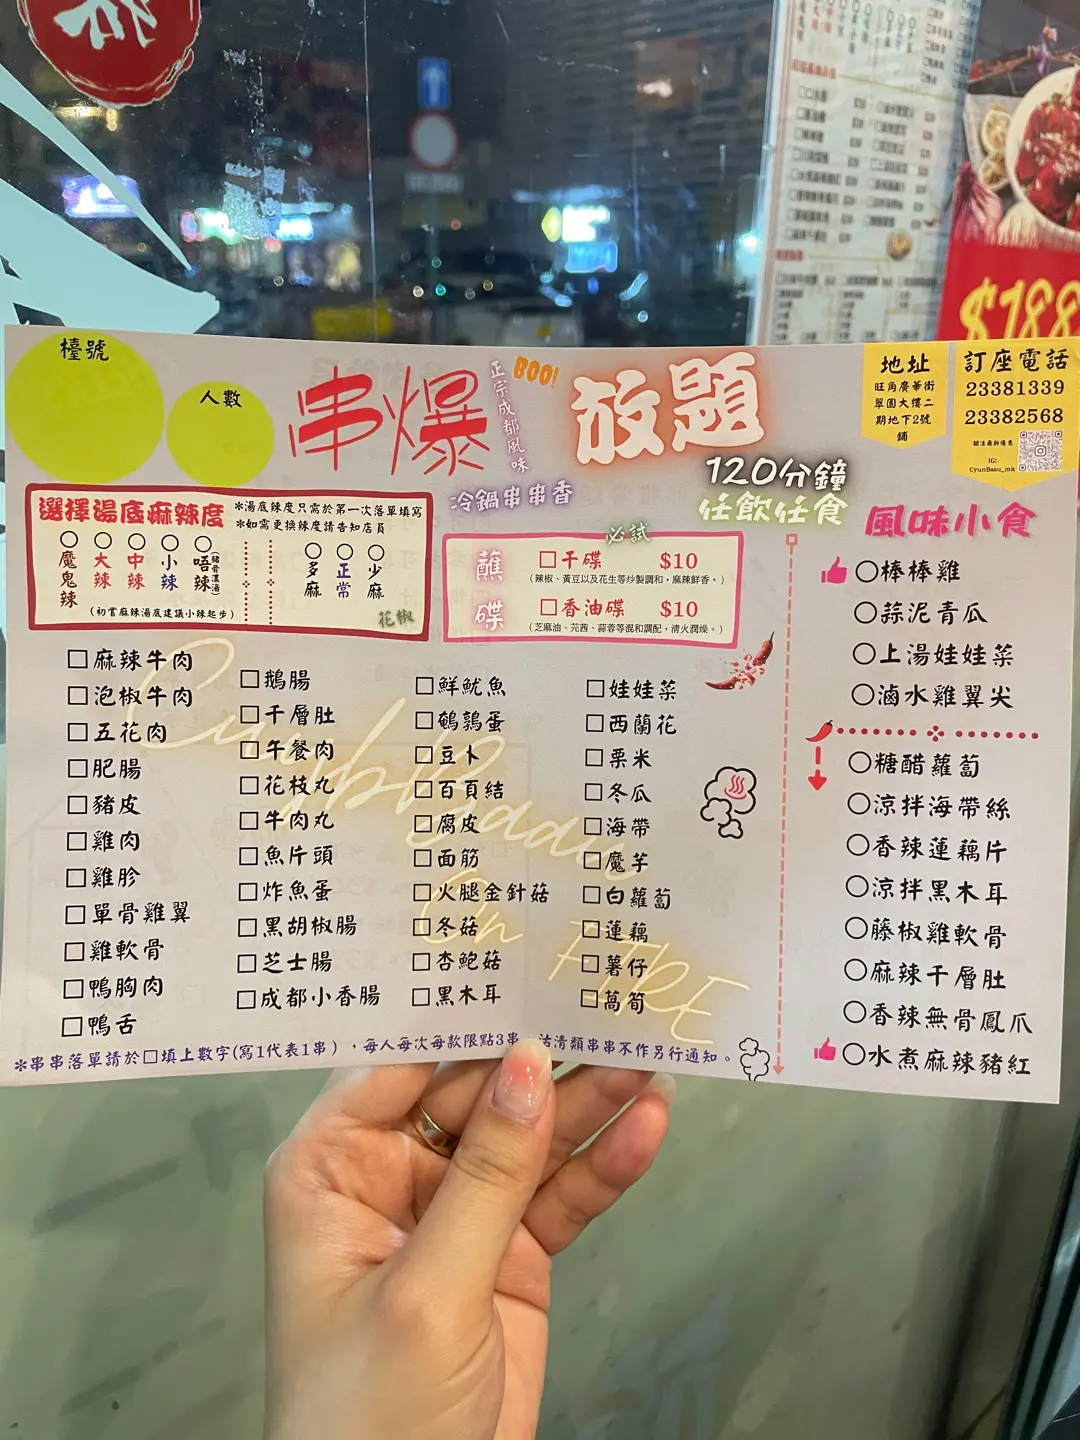 檯號
人數
串爆
正宗成都風味
BOO!
放題
120分鐘
任飲任食
冷鍋串串香
地址
旺角廣華街
翠園大樓二
期地下2號
鋪
訂座電話
23381339
23382568
關注最新優惠
IG:
CyunBaau_mk
選擇湯底麻辣度
*湯底辣度只需於第一次落單填寫
*如需更換辣度請告知店員
○魔鬼辣
○大辣
○中辣
○小辣
○唔辣(豬骨濃湯)
○多麻
○正常
○少麻
(初嘗麻辣湯底建議小辣起步)
花椒
必試
蘸碟
□干碟 $10
(辣椒、黃豆以及花生等炒製調和，麻辣鮮香。)
□香油碟 $10
(芝麻油、芫茜、蒜蓉等混和調配，清火潤燥。)
□麻辣牛肉
□泡椒牛肉
□五花肉
□肥腸
□豬皮
□雞肉
□雞胗
□單骨雞翼
□雞軟骨
□鴨胸肉
□鴨舌
□鵝腸
□千層肚
□午餐肉
□花枝丸
□牛肉丸
□魚片頭
□炸魚蛋
□黑胡椒腸
□芝士腸
□成都小香腸
□鮮魷魚
□鵪鶉蛋
□豆卜
□百頁結
□腐皮
□面筋
□火腿金針菇
□冬菇
□杏鮑菇
□黑木耳
□娃娃菜
□西蘭花
□粟米
□冬瓜
□海帶
□魔芋
□白蘿蔔
□蓮藕
□薯仔
□萵筍
*串串落單請於□填上數字(寫1代表1串)，每人每次每款限點3串。沽清類串串不作另行通知。
風味小食
○棒棒雞
○蒜泥青瓜
○上湯娃娃菜
○滷水雞翼尖
○糖醋蘿蔔
○涼拌海帶絲
○香辣蓮藕片
○涼拌黑木耳
○藤椒雞軟骨
○麻辣千層肚
○香辣無骨鳳爪
○水煮麻辣豬紅
On FIRE
$188